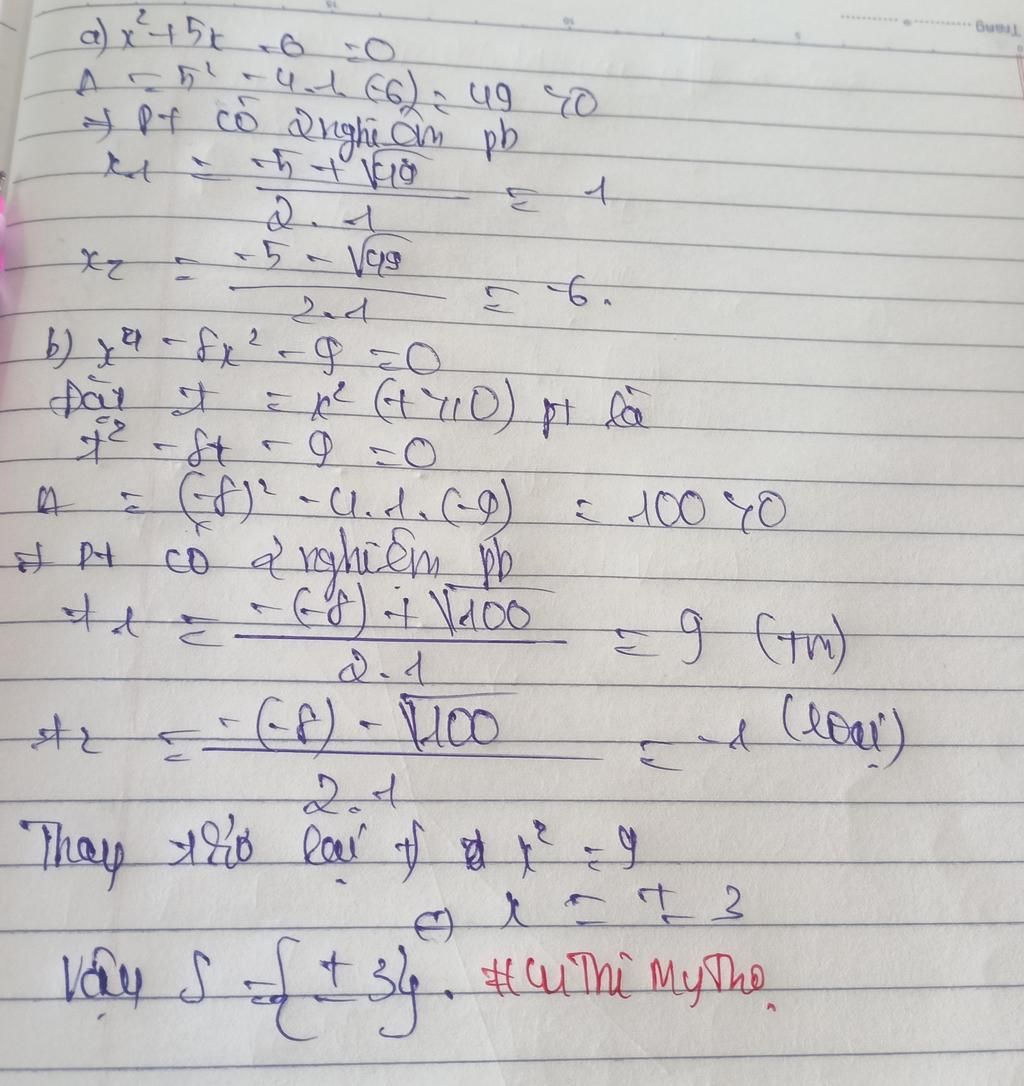 Trang
a) x² + 5x - 6 = 0
Δ = 5² - 4.1.(-6) = 49 > 0
⇒ Pt có 2 nghiệm pb
x₁ = (-5 + √49) / (2.1) = 1
x₂ = (-5 - √49) / (2.1) = -6.
b) x⁴ - 8x² - 9 = 0
Đặt t = x² (t ≥ 0) pt là
t² - 8t - 9 = 0
Δ = (-8)² - 4.1.(-9) = 100 > 0
⇒ Pt có 2 nghiệm pb
t₁ = (-(-8) + √100) / (2.1) = 9 (tm)
t₂ = (-(-8) - √100) / (2.1) = -1 (loại)
Thay lại x² = 9
⇔ x = ± 3
Vậy S = {± 3}. #CuThiMyTho